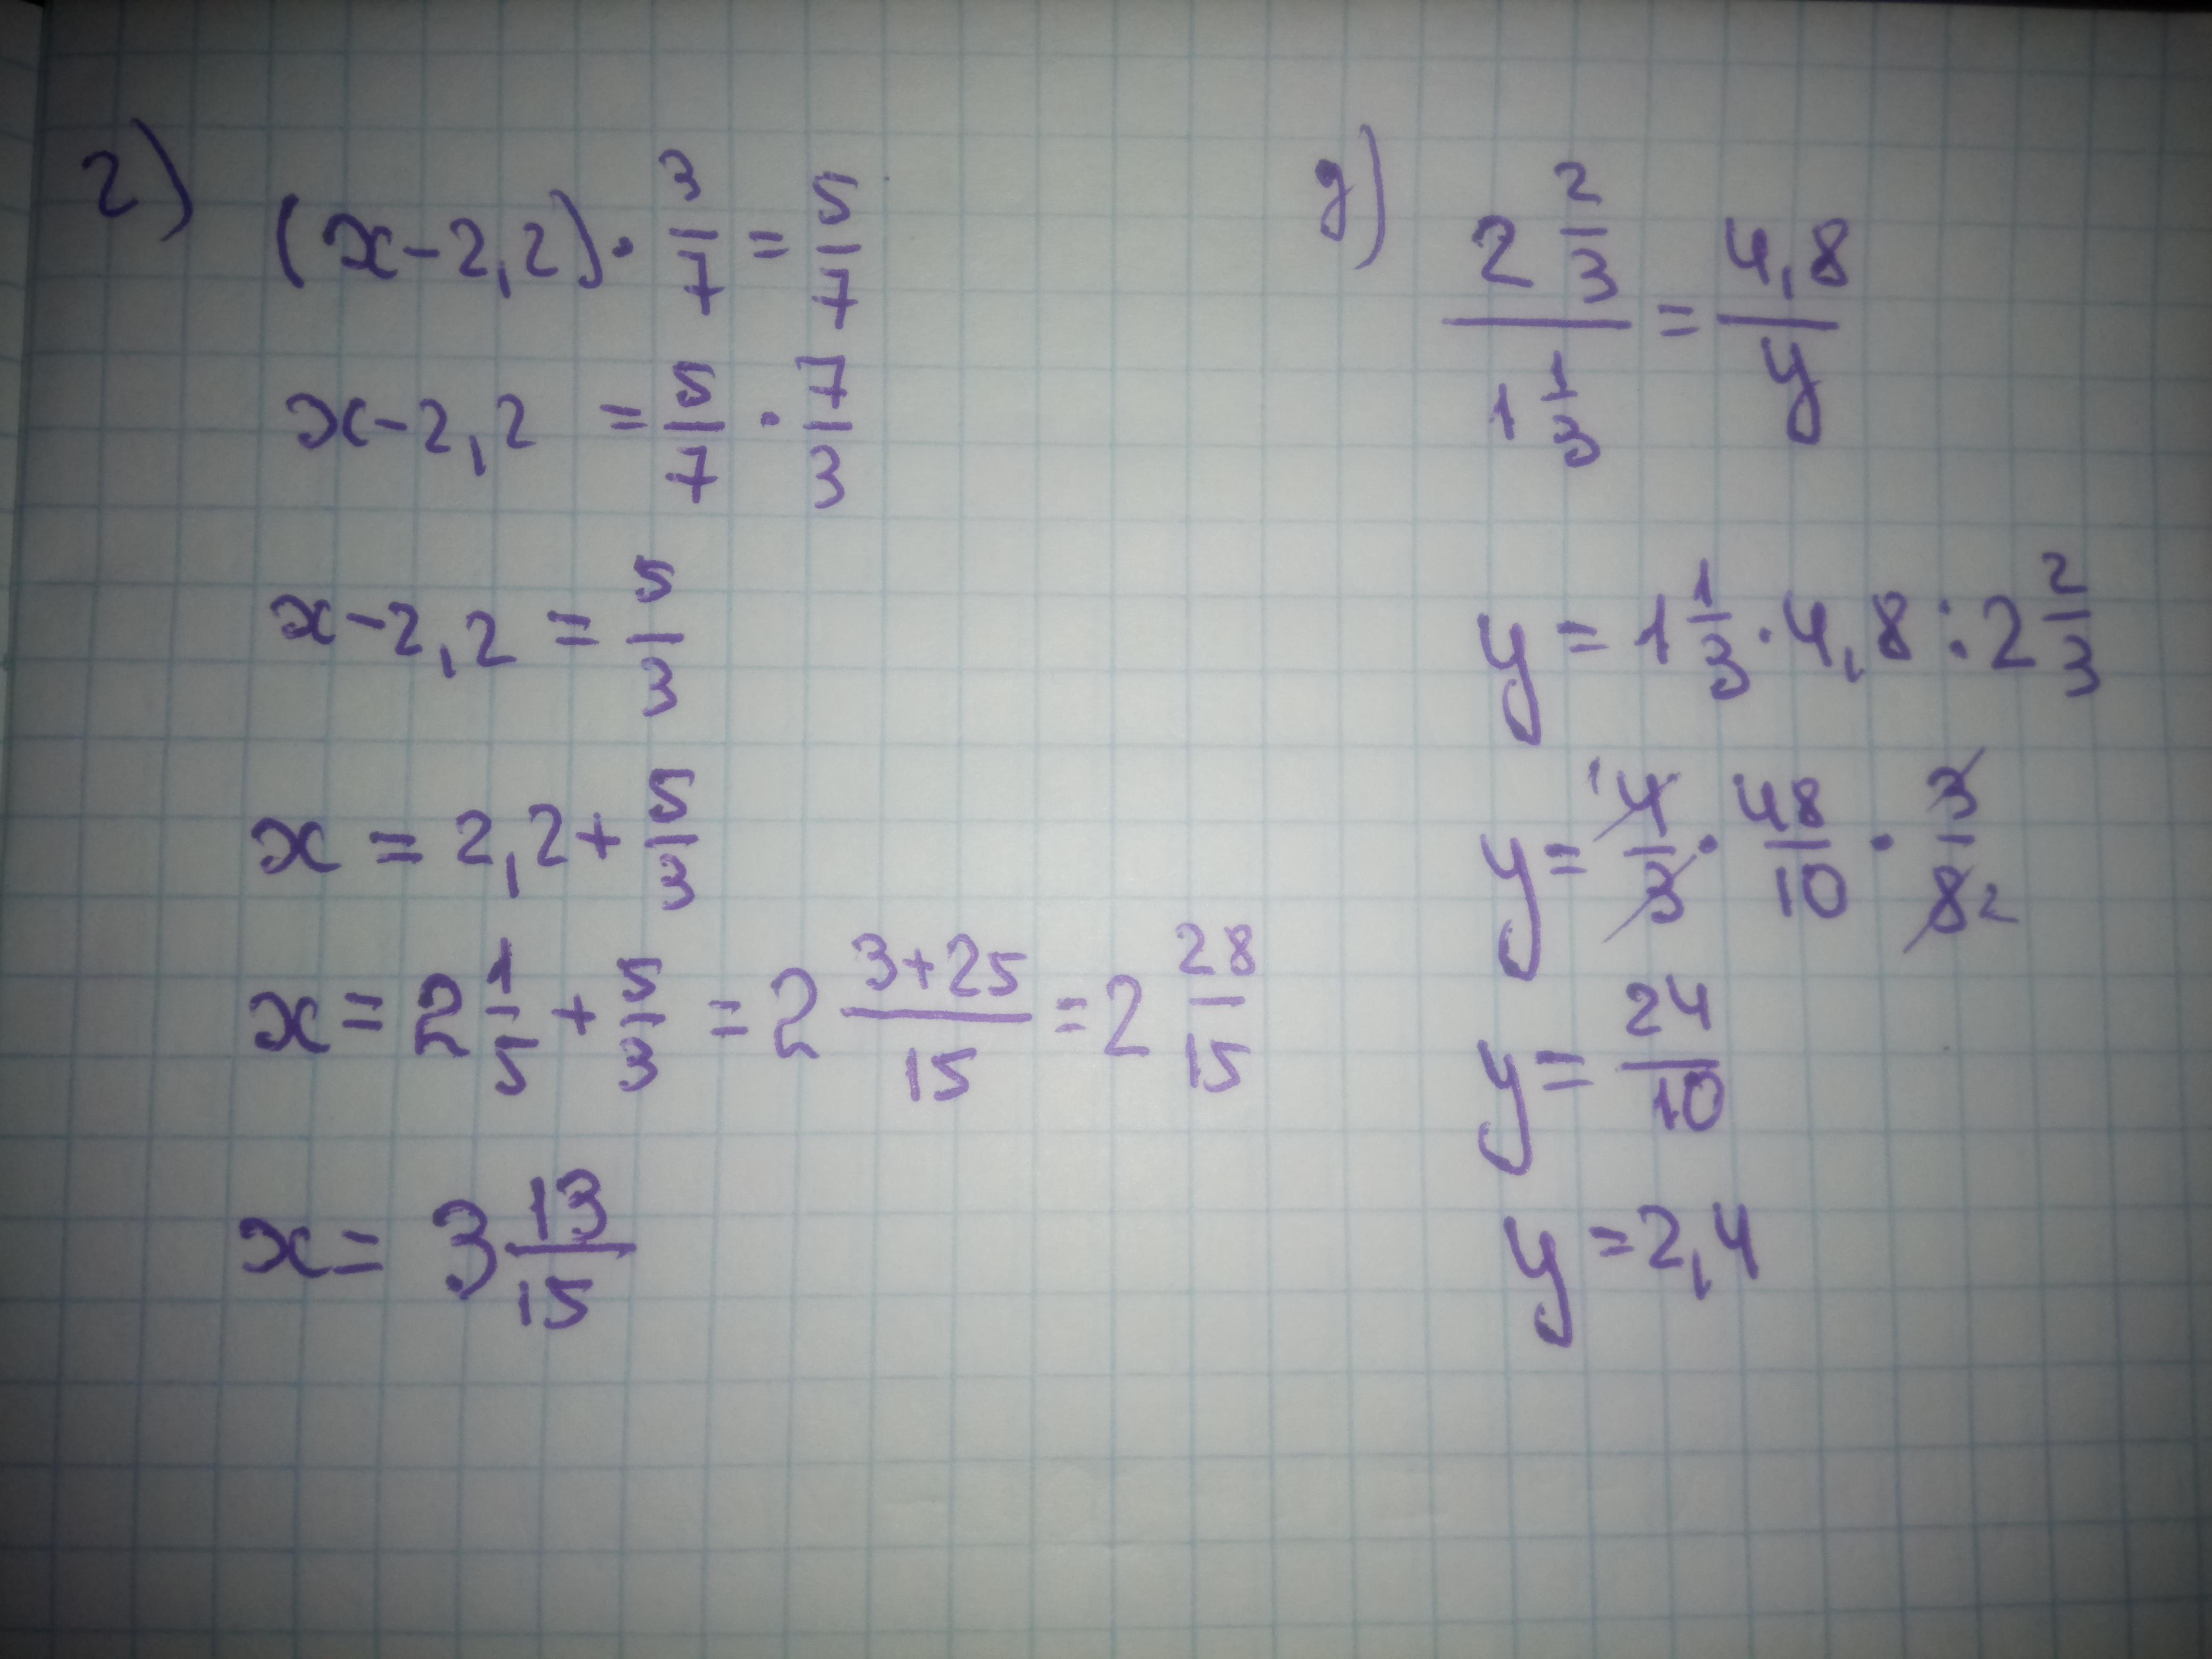 г)
(x-2,2)·3/7=5/7
x-2,2=5/7·7/3
x-2,2=5/3
x=2,2+5/3
x=2 1/5+5/3=2 (3+25)/15=2 28/15
x=3 13/15
д)
(2 2/3)/(1 1/3)=4,8/y
y=1 1/3·4,8:2 2/3
y=1 4/3·48/10·3/8 2
y=24/10
y=2,4